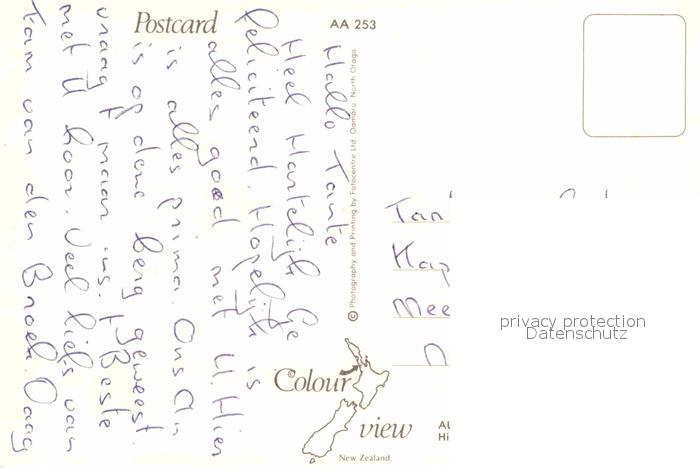 Postcard
AA 253
Hallo Tante
Heel Hartelijk Ge
feliciteerd. Hopelijk is
alles goed met U. Hier
is alles prima. Ons
is op deze berg geweest.
vraag maar ins. Beste
met U hoor. Veel liefs van
Fam van den Broek.
© Photography and Printing by Fotocentre Ltd. Oamaru. North Otago.
Tan
Kap
Mee
privacy protection
Datenschutz
Colour
view
New Zealand.
AL
Hi